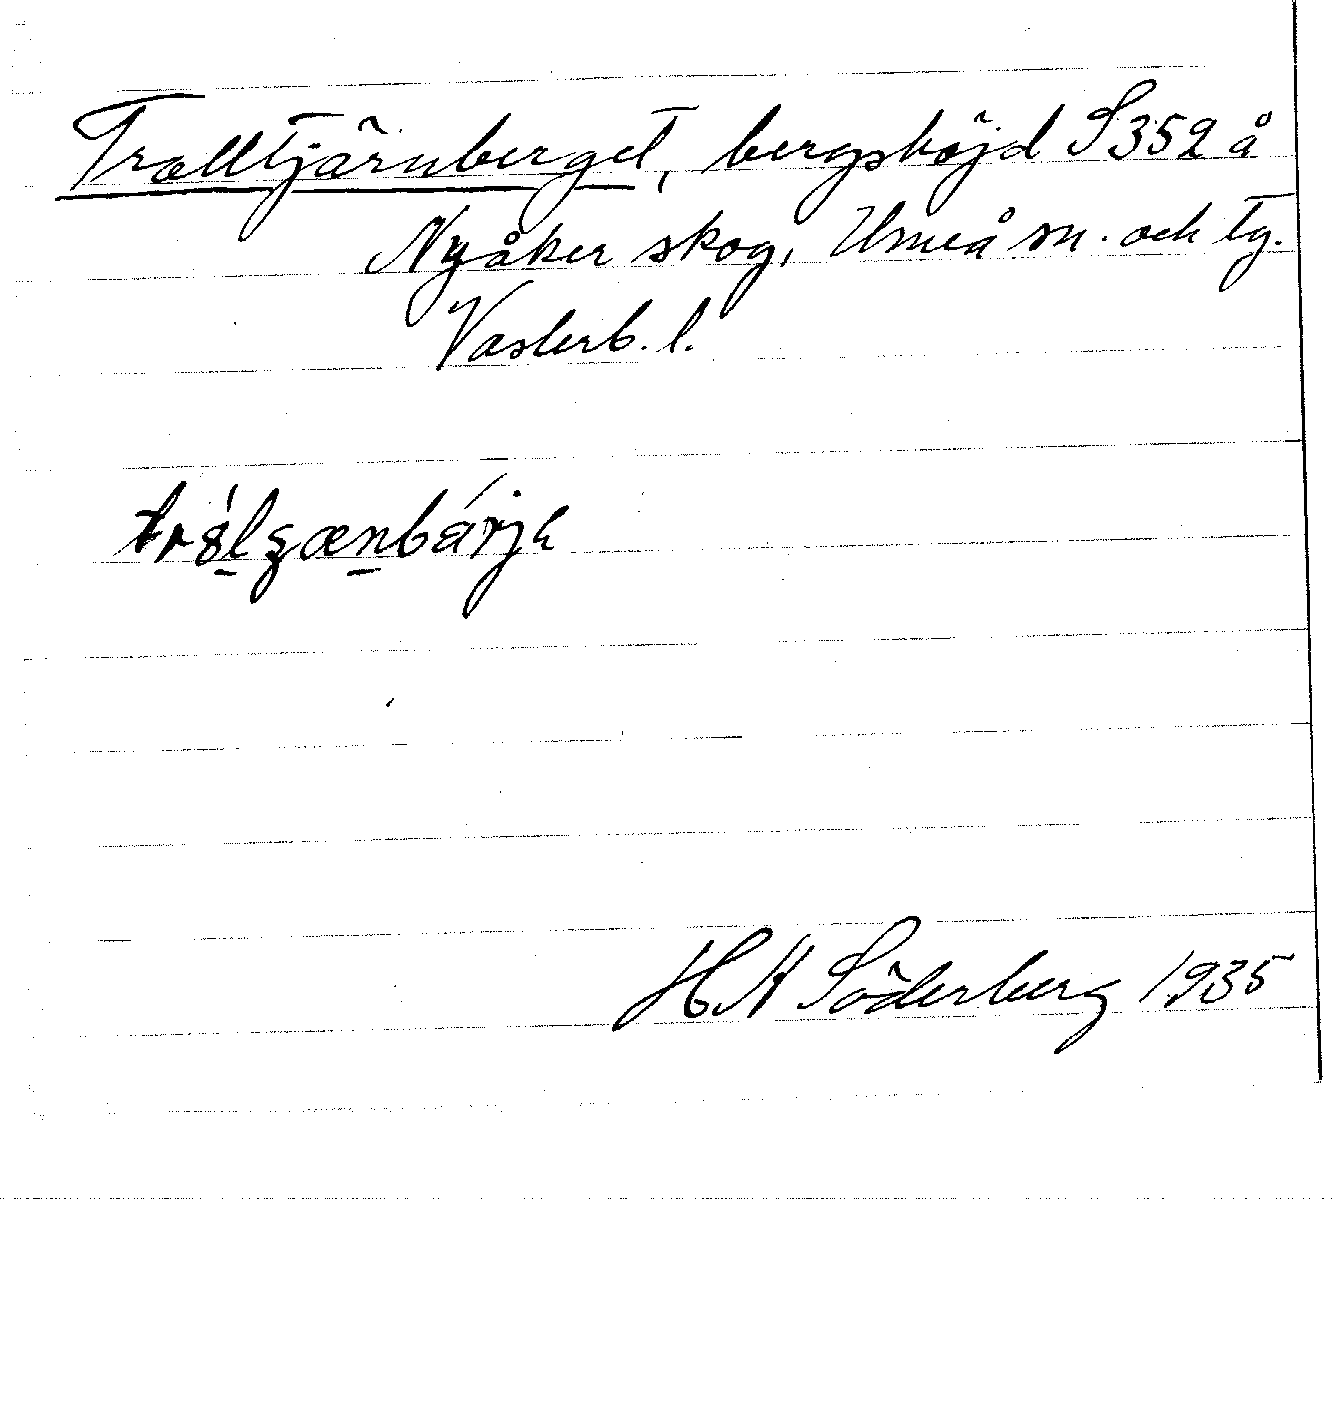 Trolltjärnberget, bergshöjd S 352 å
Nyåker skog, Umeå sn. och tg.
Västerb. l.
H A Söderberg 1935